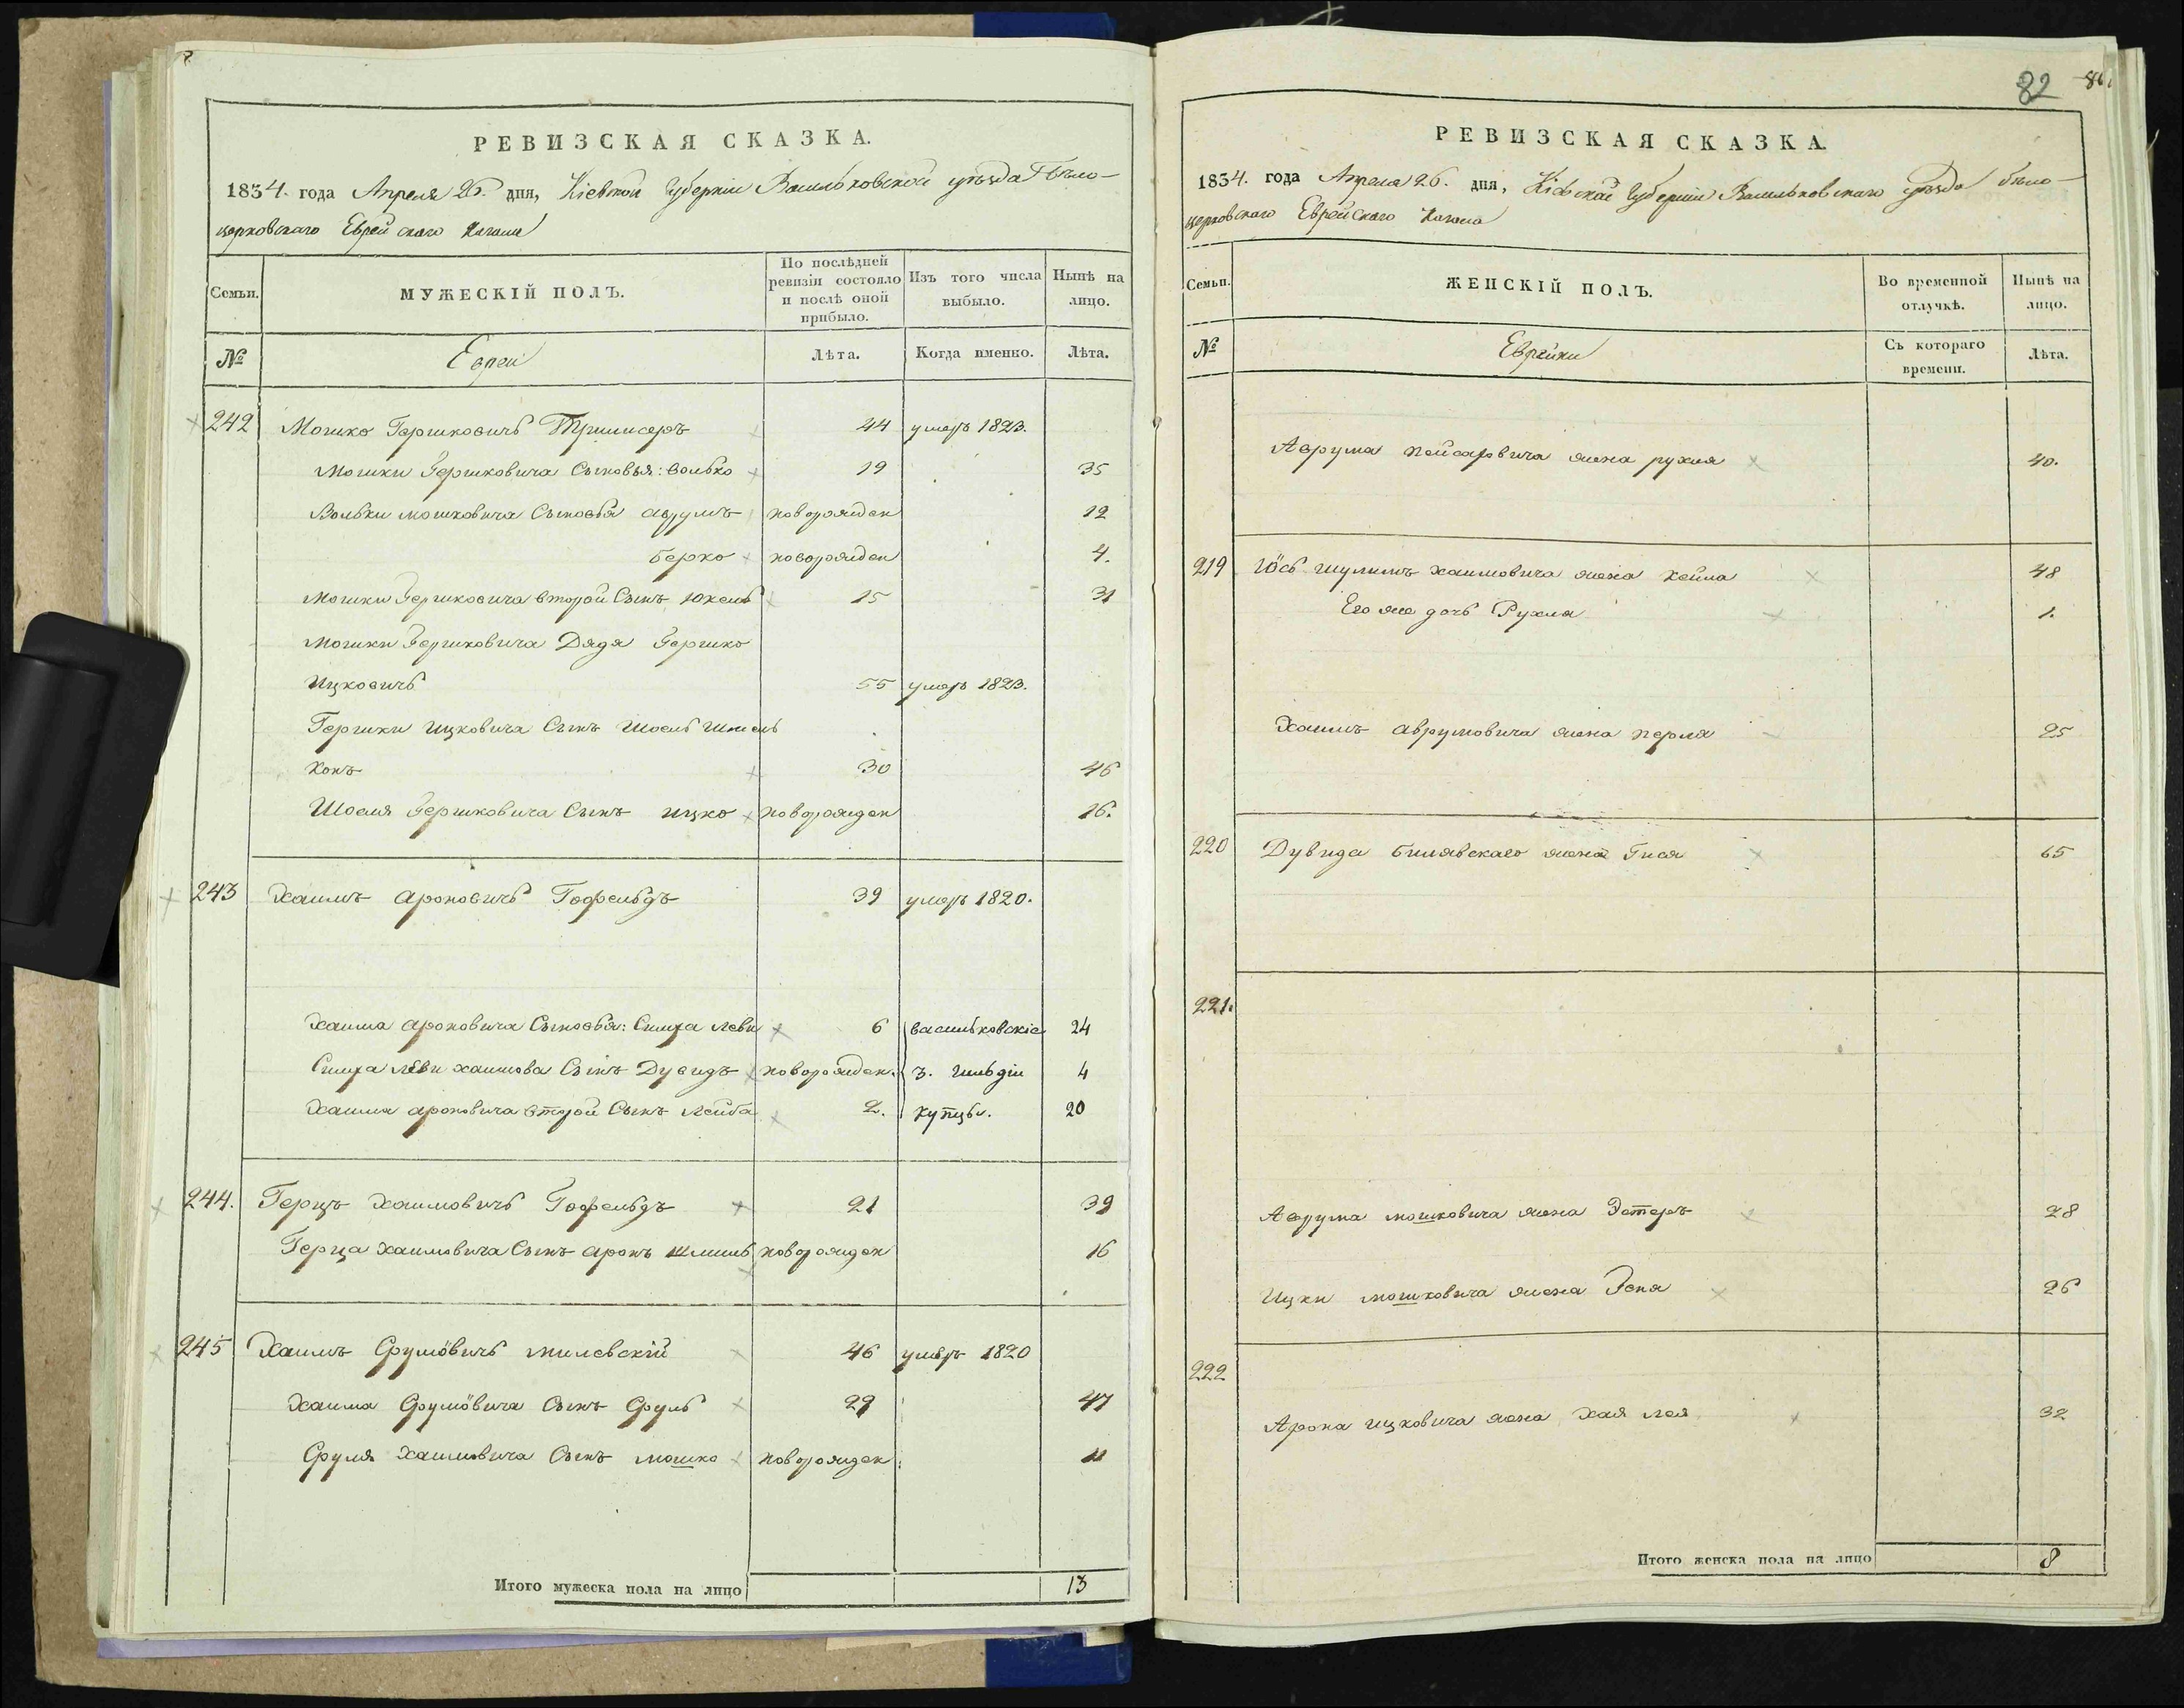 РЕВИЗСКАЯ СКАЗКА.
1834. года Апреля 26. дня, Кіевской Губерніи Васильковской уѣзда Бѣло-
церковскаго Еврейскаго Кагала
Семьи. МУЖЕСКІЙ ПОЛЪ. По послѣдней ревизіи состояло и послѣ оной прибыло. Изъ того числа выбыло. Нынѣ на лицо.
№ Евреи Лѣта. Когда именно. Лѣта.
242 Мошко Гершковичъ Тришисеръ 44 умеръ 1823.
Мошки Гершковича Сыновья: Волько 19 35
Вольки мошковича Сыновья аврумъ новорожден 12
Берко новорожден 4.
Мошки Гершковича второй Сынъ Юхель 15 31
Мошки Гершковича Дядя Гершко
Ицковичъ 55 умеръ 1823.
Гершки ицковича Сынъ Шоель
конъ 30 46
Шоеля Гершковича Сынъ ицко новорожден 16.
243 Хаимъ ароновичъ Гофельдъ 39 умеръ 1820.
Хаима ароновича Сыновья: Симха леви 6 васильковскіе 24
Симха леви хаимова Сынъ Дувидъ новорожден. 3. гильдіи 4
Хаима ароновича второй Сынъ лейба 2. купцы. 20
244. Герцъ Хаимовичъ Гофельдъ 21 39
Герца Хаимовича Сынъ аронъ новорожден 16
245 Хаимъ Срулiовичъ милевскій 46 умеръ 1820
Хаима Срулiовича Сынъ Сруль 29 47
Сруля Хаимовича Сынъ мошко новорожден 11
Итого мужеска пола на лицо 13
82
РЕВИЗСКАЯ СКАЗКА.
1834. года Апреля 26. дня, Кіевской Губерніи Васильковскаго уѣзда бѣло-
церковскаго Еврейскаго Кагала
Семьи. ЖЕНСКІЙ ПОЛЪ. Во временной отлучкѣ. Нынѣ на лицо.
№ Еврейки Съ котораго времени. Лѣта.
Аврума пейсаховича жена рухля 40.
219 Юсь шулимъ хаимовича жена хейла 48
Его же дочь Рухля 1.
Хаимъ аврумовича жена перля 25
220 Дувида билявскаго жена Гися 65
221.
Аврума мошковича жена Эстеръ 28
Ицки мошковича жена Эеня 26
222
Арона ицковича жена хая лея 32
Итого женска пола на лицо 8